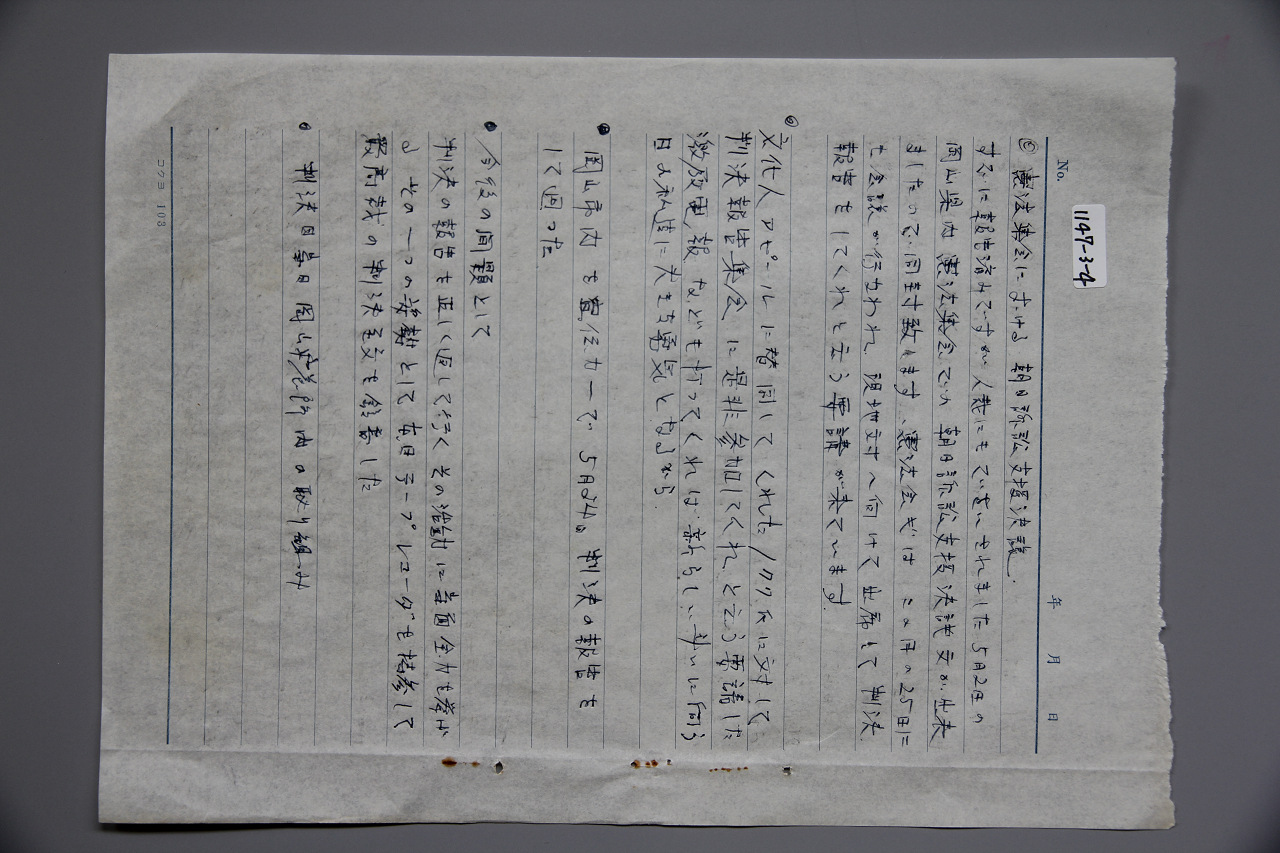 1147-3-4
No.
年 月 日
◎ 憲法集会における 朝日訴訟支援決議.
すでに報告済みですが 人裁にもていあいされました 5月2日の
岡山県内 憲法集会での 朝日訴訟支援決議文が出来
ましたので 同封致します、憲法会ぎは この月の25日に
も会議が行われ、現地対へ向けて出席して 判決
報告をしてくれと云う要請が来ています.
◎ 文化人アピールに賛同してくれた 177氏に対して
判決報告集会に是非参加してくれ と云う要請した
激励電報などを打ってくれれば 新らしい斗いに向う
日の私達に大きな勇気となるから.
● 岡山市内を宣伝カーで 5月24日 判決の報告を
して廻った
● 今後の問題として
判決の報告を正しく返して行く その活動に当面全力を挙げ
る その一つの 宣教として 夜日 テープレコーダーを持参して
最高裁の判決主文を録音した
● 判決日当日 岡山療養所内の取り組み
コクヨ 108